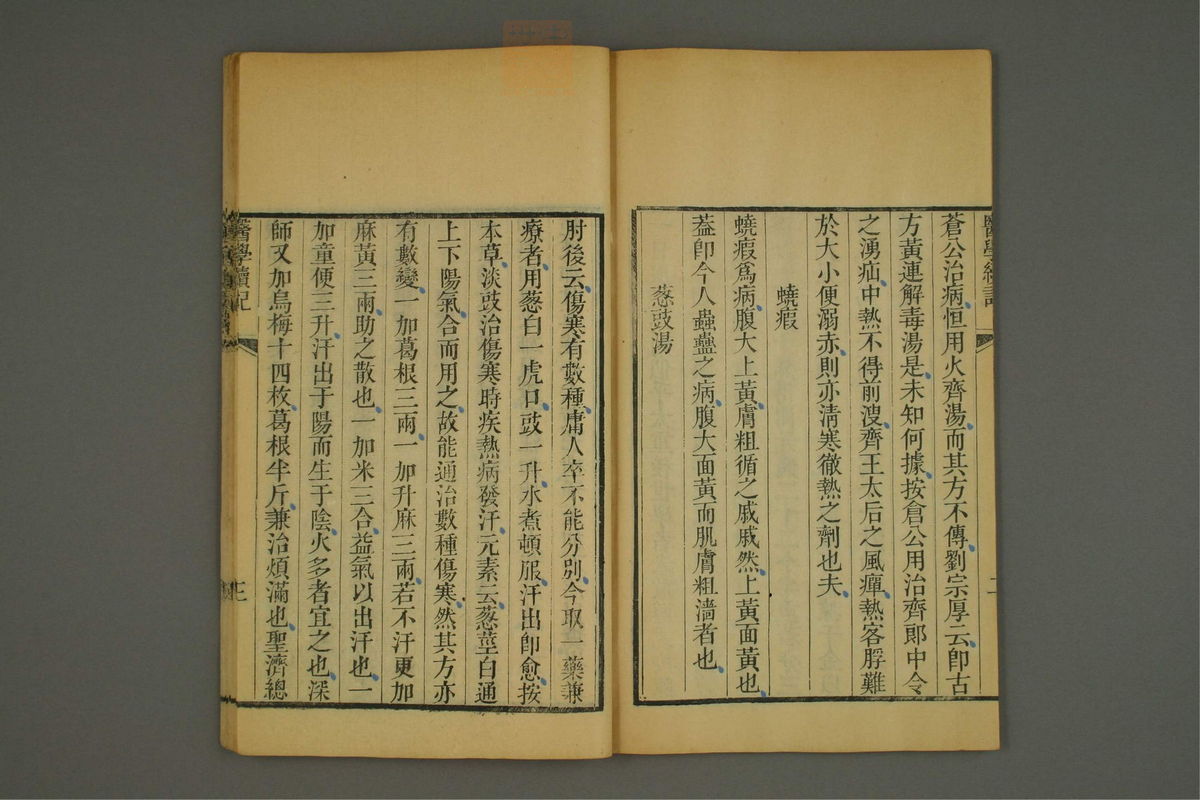 醫學續記
蒼公治病恒用火齊湯而其方不傳劉宗厚云卽古
方黃連解毒湯是未知何據按倉公用治齊郞中令
之湧疝中熱不得前溲齊王太后之風癉熱客脬難
於大小便溺赤則亦淸寒徹熱之劑也夫
蟯瘕
蟯瘕爲病腹大上黃膚粗循之戚戚然上黃面黃也
葢卽今人蟲蠱之病腹大面黃而肌膚粗濇者也
葱豉湯
肘後云傷寒有數種庸人卒不能分別今取一藥兼
療者用葱白一虎口豉一升水煮頓服汗出卽愈按
本草淡豉治傷寒時疾熱病發汗元素云葱莖白通
上下陽氣合而用之故能通治數種傷寒然其方亦
有數變一加葛根三兩一加升麻三兩若不汗更加
麻黃三兩助之散也一加米三合益氣以出汗也一
加童便三升汗出于陽而生于陰火多者宜之也深
師又加烏梅十四枚葛根半斤兼治煩滿也聖濟總
醫學讀記